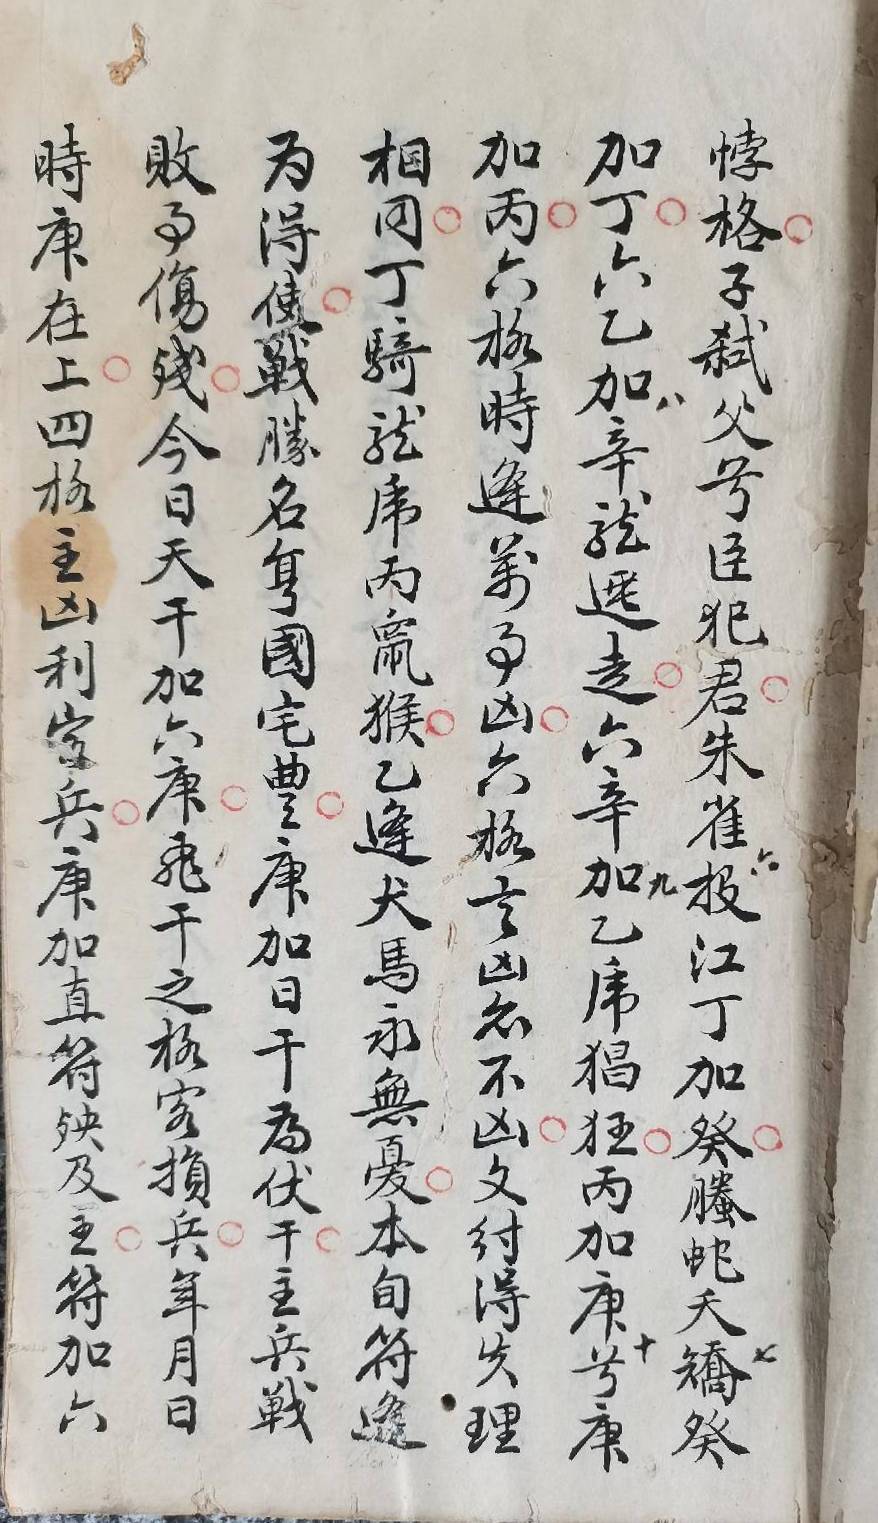 悖格子弑父兮臣犯君朱雀六投江丁加癸螣蛇夭矯七癸
加丁六乙加八辛龍逃走六辛加九乙虎猖狂丙加庚兮十庚
加丙六格時逢萬事凶六格言凶名不凶文付得失理
相同丁騎龍虎丙鼠猴乙逢犬馬永無憂本旬符逢
为得使戰勝名写國宅豊庚加日干為伏干主兵戰
敗事傷残今日天干加六庚飛干之格客損兵年月日
時庚在上四格主凶利客兵庚加直符殃及主符加六